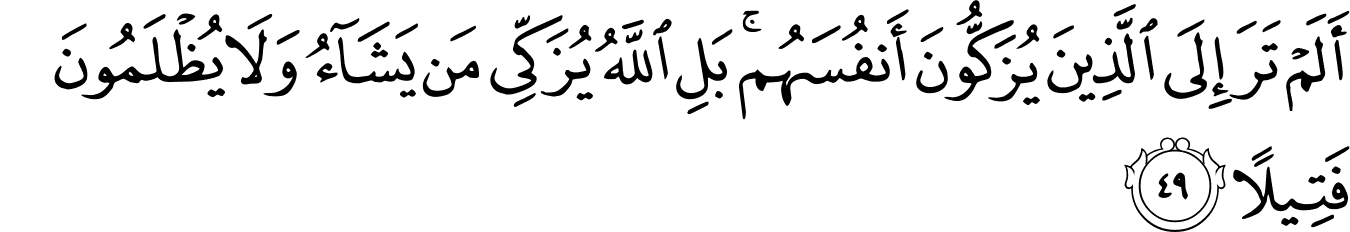 أَلَمْ تَرَ إِلَى ٱلَّذِينَ يُزَكُّونَ أَنفُسَهُم ۚ بَلِ ٱللَّهُ يُزَكِّى مَن يَشَآءُ وَلَا يُظْلَمُونَ
فَتِيلًا ٤٩